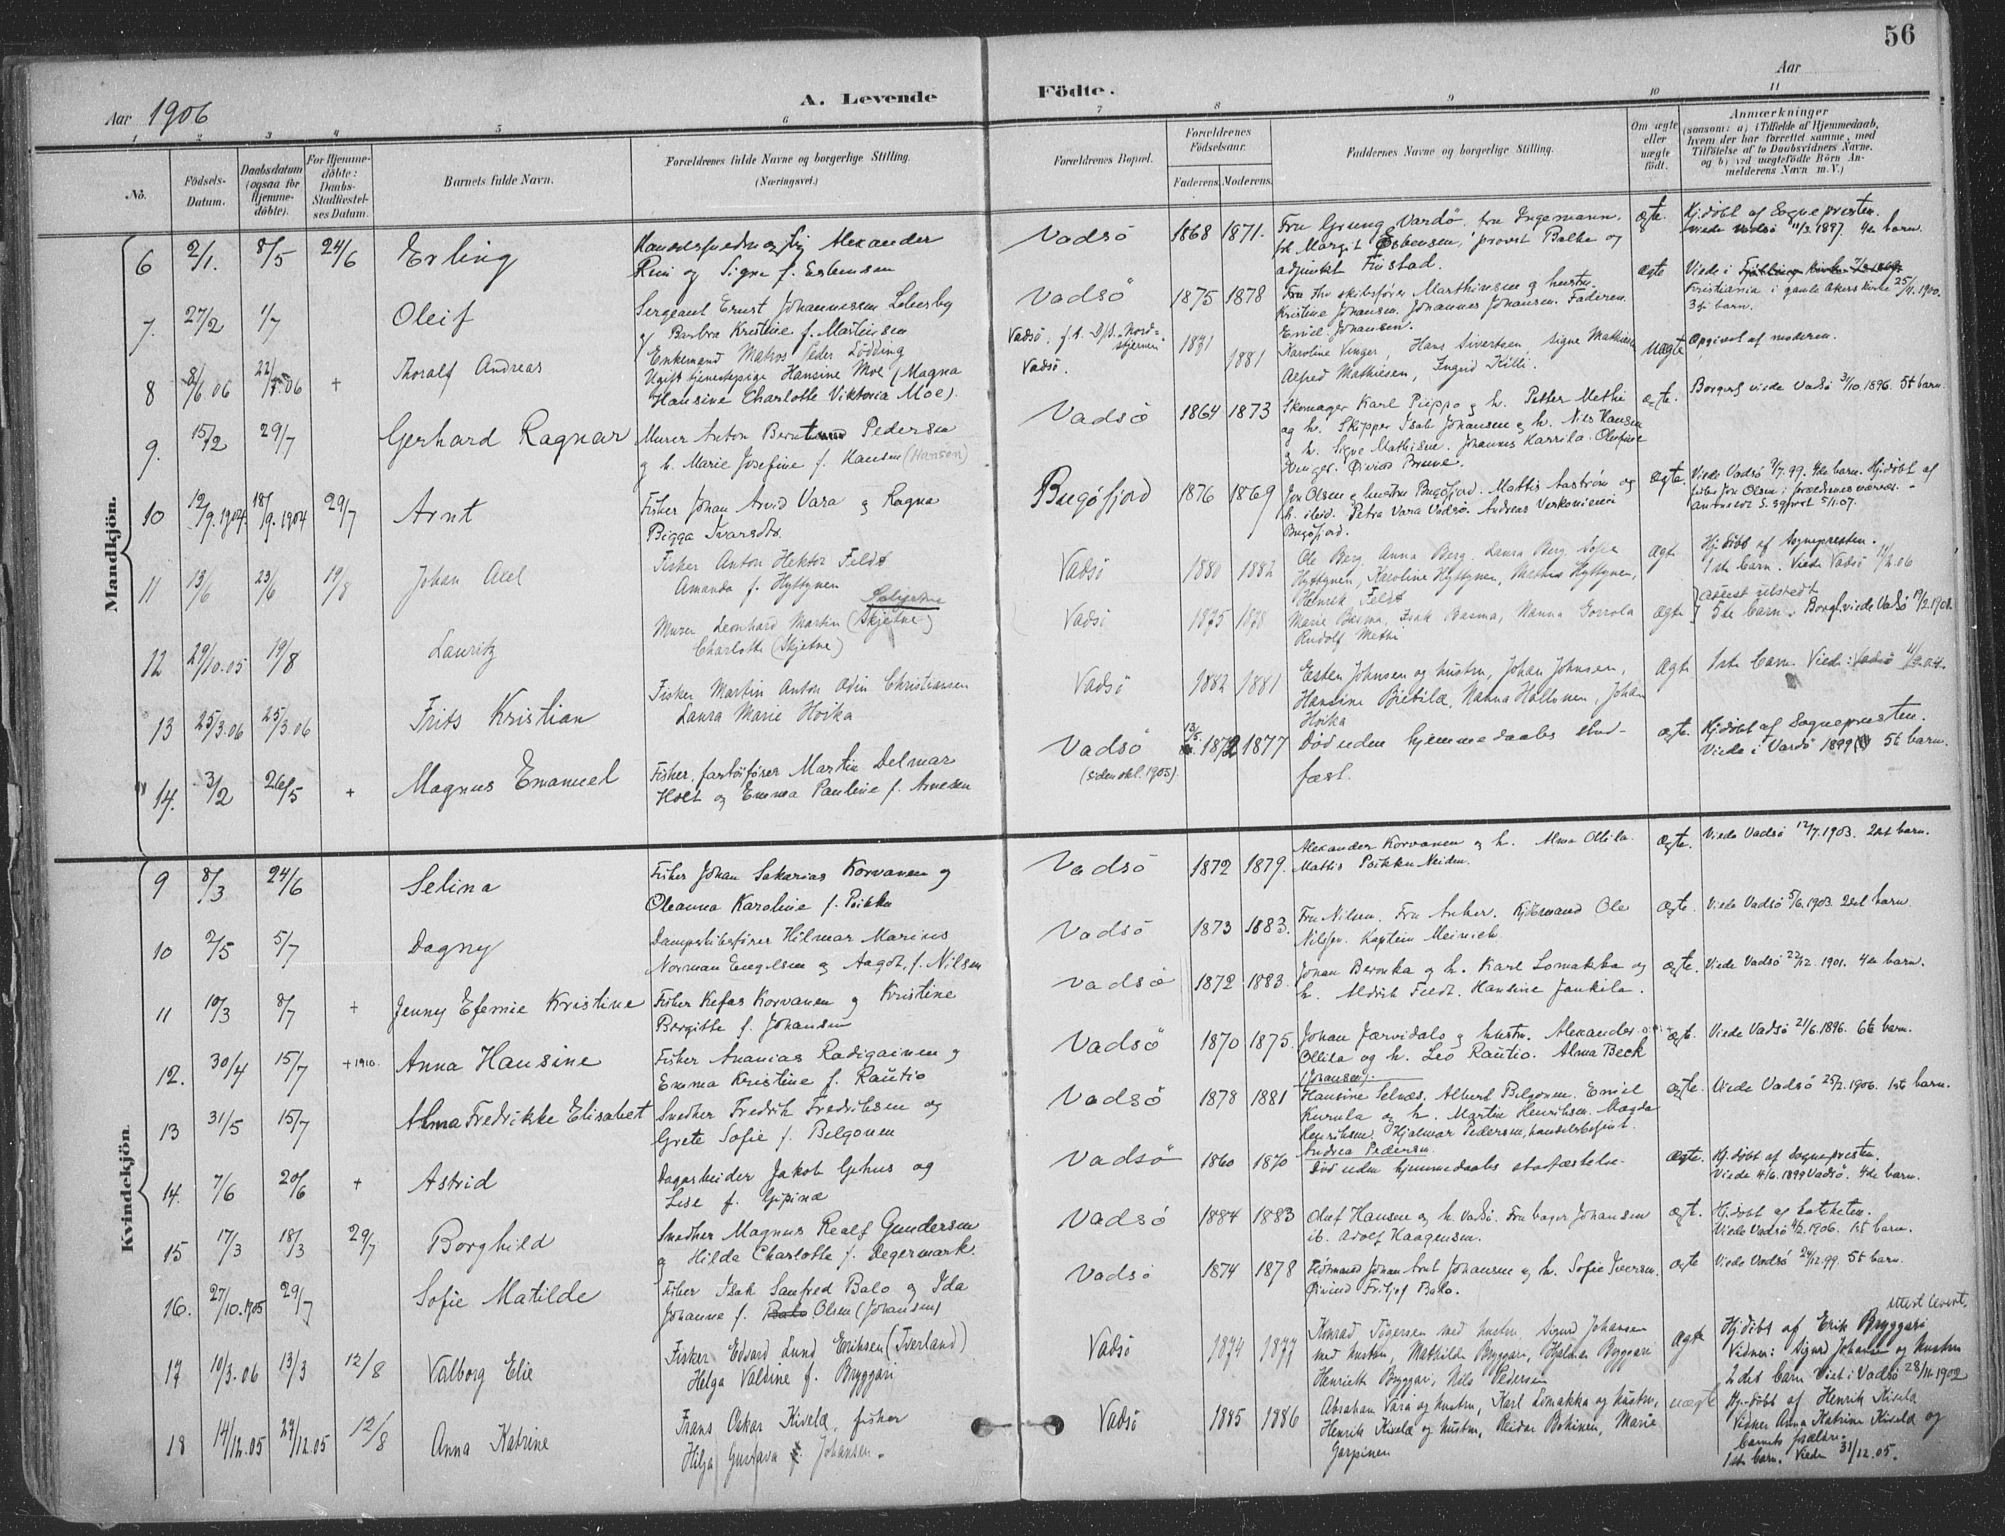 56
Aar 1906
A. Levende
Födte.
Aar
1 2 3 4 5 6 7 8 9 10 11
No.
Födsels-Datum.
Daabsdatum (ogsaa for Hjemmedöbte).
For Hjemmedöbte: Daabs-Stadfæstelses Datum.
Barnets fulde Navn.
Forældrenes fulde Navne og borgerlige Stilling.
(Næringsvei.)
Forældrenes Bopæl.
Forældrenes Födselsaar.
Faderens. Moderens.
Faddernes Navne og borgerlige Stilling.
Om ægte eller uægte födt.
Anmærkninger
(saasom: a) i Tilfælde af Hjemmedaab, hvem der har forrettet samme, med Tilföielse af to Daabsvidners Navne. og b) ved uægtefödte Börn Anmelderens Navn m. V.)
Mandkjön.
6 2/1. 8/5 24/6 Erling
Alexander
og Signe f. Esbensen
Vadsö 1868 1871.
Fru Grung Vardö. fru Ingemann.
frk. Margit Esbensen, provst Balke og
adjunkt Finstad.
ægte. Hj.döbt af Sognepresten.
viede Vadsö 11/3. 1897. 4de barn.
7. 27/2 1/7 Oleif
Sergeant Ernst Johannessen Lebesby
og Barbra Kristine f. Martinsen
Vadsö 1875 1878
Kristine Johansen. Johannes Johansen. Faderen.
Emil Johansen.
ægte Viede i
Kristiania i gamle Akers kirke 25/11. 1900.
3die barn.
8 8/6 06 22/7.06 + Thoralf Andreas
Enkemand Matros Peder Lödding
Ugift tjenestepige Hansine Moe (Magna
Hansine Charlotte Viktoria Moe).
Vadsö.
1881 1881
Karoline Vinger, Hans Sivertsen, Signe Mathisen
Alfred Mathiesen, Ingrid Killi.
uægte Opgivet af moderen.
9. 15/2 29/7 Gerhard Ragnar
Murer Anton Pedersen
og h. Marie Josefine f. Hansen (Hanson)
Vadsö 1864 1873
Skomager Karl Pieppo og h. Petter Methi
og h. Skipper Isak Johansen og h. Nils Hansen
og h. Signe Mathisen. Johannes Karrila. Olufine
Vinger. Öivind Brune.
ægte. Borgerl. viede Vadsö 31/10. 1896. 5t barn.
10 12/9. 1904. 18/9. 1904 29/7 Arnt
Fisher Johan Arvid Vara og Ragna
Bigga Ivarsdtr.
Bugöfjord 1876 1869
Jon Olsen og hustru Bugöfjord. Mattis Aaström og
h. ibid. Petra Vara Vadsö. Andreas
Bugöfjord.
ægte. Viede Vadsö 9/7. 99. 4de barn. Hj.döbt af
11 13/6 23/6 19/8 Johan Axel
Fisker Anton Hektor Feldt
Amanda f. Hyttynen
Vadsö 1880 1882
Ole Berg, Anna Berg, Laura Berg, Sofie
Hyttynen, Karoline Hyttynen, Mathis Hyttynen,
Henrik Feldt
ægte Hj.döbt af Sognepresten.
1ste barn. Viede Vadsö 11/2.06
12 29/10.05 19/8 Lauritz
Murer Leonhard Martin (Skjetne)
Charlotte (Skjetne)
Vadsö 1875 1878
Marie Basma, Isak Basma, Nanna
Rudolf Methi
ægte 5te barn. Borgl. viede Vadsö
13 25/3.06 25/3.06 Frits Kristian
Fisker Martin Anton Odin Christiansen
Laura Marie Hoika
Vadsö 1882 1881
Esten Johnsen og hustru, Johan Johnsen,
Hansine Bietilæ, Nanna Holtonen, Johan
Hoika
ægte 1ste barn. Viede i Vadsö
14. 3/2 26/5 + Magnus Emanuel
Fisher, fartöiförer Martin Delmar
Holt og Emma Pauline f. Arnesen
Vadsö (siden okt. 1905). 13/5. 1872 1877
Död uden hjemmedaabs stad-
fæst.
ægte. Hj.döbt af Sognepresten.
Viede i Vardö 1899 5t barn.
Kvindekjön.
9 8/3 24/6 Selina
Fisher Johan Sakarias Korvanen og
Oleanna Karoline f. Poikka
Vadsö 1872 1879.
Alexander Korvanen og h. Alma Ollila.
Mattis Poikka Neiden.
ægte. Viede Vadsö 12/7. 1903. 2det barn.
10 2/5 5/7 Dagny
Dampskibsförer Hilmar Marius
Norman Engelsen og Aagot, f. Nilsen
Vadsö 1873 1883.
Fru Nilsen. Fru Anker. Kjöbmand Ole
Nilsen. Kaptein Meinich.
ægte. Viede Vadsö 5/6. 1903. 2det barn.
11 10/3 8/7 + Jenny Efemie Kristine
Fisher Kefas Korvanen og Kristine
Bergitte f. Johansen
Vadsö 1872 1883.
Johan Beronka og h. Karl Lomakka og
h. Aldrik Feldt. Hansine Jankila.
ægte. Viede Vadsö 22/12. 1901. 4de barn.
12. 30/4 15/7 + 1910. Anna Hansine
Fisher Ananias Radigainen og
Emma Kristine f. Rautio
Vadsö 1870 1875.
Johan Jærvidalo og hustru. Alexander
Ollila og h. Leo Rautio. Alma Beck
(Johansen).
ægte. Viede Vadsö 21/6. 1896. 6te barn.
13 31/5 15/7 Alma Fredrikke Elisabet
Snedker Fredrik Fredriksen og
Grete Sofie f. Pelgonen
Vadsö 1878 1881
Hansine Selnæs, Albert Pelgonen. Emil
Kurula og h. Martin Henriksen. Magda
Henriksen. Hjalmar Pedersen, handelsbefint.
Andrea Pedersen.
ægte. Viede Vadsö 25/2. 1906. 1ste barn.
14. 7/6 20/6 + Astrid
Dagarbeider Jakob Gehus og
Lise f. Gipinæ
Vadsö 1860 1870
Död uden hjemmedaabs stadfæstelse.
ægte. Hj.döbt af Sognepresten.
Viede 4/6. 1899 Vadsö. 4de barn.
15 17/3 18/3 29/7 Borghild
Snedker Magnus Realf Gundersen
og Hilda Charlotte f. Segermark.
Vadsö 1884 1883
Oluf Hansen og h. Vadsö. Fru bager Johansen
ib. Adolf Haagensen.
ægte. Hj.döbt af
Viede Vadsö 1906. 1st barn.
16. 27/10.1905 29/7 Sofie Matilde
Fisher Isak Sanfred Balo og Ida
Johanne f. Balo Olsen (Johansen)
Vadsö 1874 1878
Johan Arnt Johansen og h. Sofie Iversen.
Öivind Fritjof Balo.
ægte Viede Vadsö 24/12.99. 5t barn.
17 10/3.06 13/3 12/8 Valborg Elie
Fisker Edvard Lund Eriksen (Tverland)
Helga Valdine f. Bryggari
Vadsö 1874 1877
Konrad Törgersen med hustru, Sigurd Johansen
med hustru, Mathilde Bryggari, Hjalmar Bryggari
Henriette Bryggari, Nils Pedersen
ægte Hj.döbt af Erik Bryggari
Vidner: Sigurd Johansen og hustru
2det barn Viet i Vadsö 28/11.1902
18 14/12.05 27/12.05 12/8 Anna Katrine
Frans Oskar Kivelæ, fisker
Hilja Gustava f. Johansen.
Vadsö 1885 1886
Abraham Vara og hustru, Karl Lomakka og hustru,
Henrik Kivelæ og hustru, Reidar Bohinen, Marie
Garpinen
uægte Hj.döbt af Henrik Kivelæ
Vidner Anna Katrine Kivelæ og
barnets forældre.
1ste barn. Viede 31/12.05.